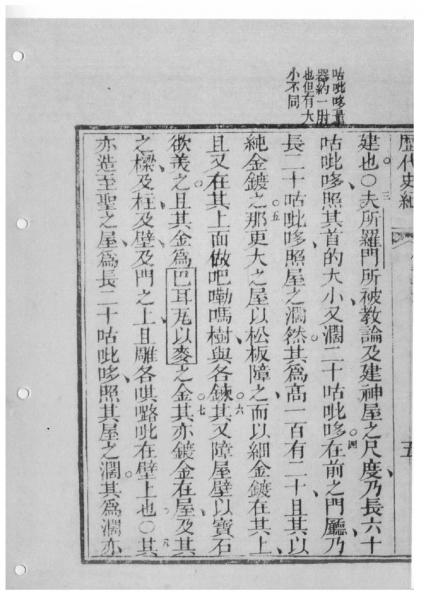 咕吡哆量
器約一肘
也但有大
小不同
歷代史紀
五
建也○三夫所羅門所被教論及建神屋之尺度乃長六十
咕吡哆照其首的大小又濶二十咕吡哆○四在前之門廳乃
長二十咕吡哆照屋之濶然其爲高一百有二十且其以
純金鍍之○五那更大之屋以松板障之而以細金鍍在其上
且又在其上面做吧嘞嗎樹與各鍊○六其又障屋壁以寶石
欲美之且其金爲巴耳瓦以麥之金○七其亦鍍金在屋及其
之樑及柱及壁及門之上且雕各唭嚧吡在壁上也○八其
亦造至聖之屋爲長二十咕吡哆照其屋之濶其爲濶亦